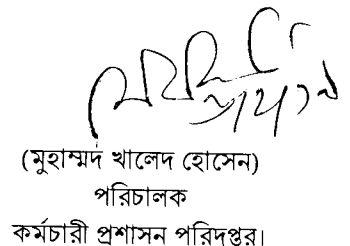 (মুহাম্মদ খালেদ হোসেন)
পরিচালক
কর্মচারী প্রশাসন পরিদপ্তর।